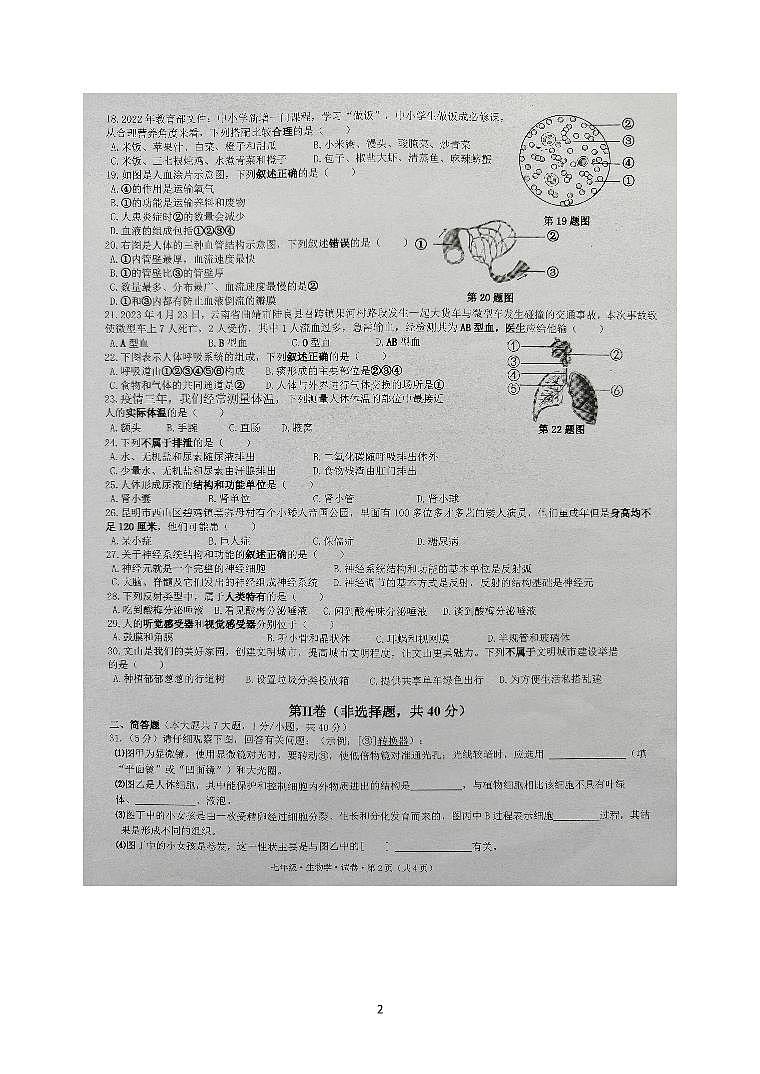 18.2022年教育部文件：中小学新增一门课程，学习“做饭”，中小学生做饭成必修课，
从合理营养角度来看，下列搭配比较合理的是（　　）
A.米饭、苹果汁、白菜、橙子和甜瓜　B.小米粥、馒头、酸腌菜、炒青菜
C.米饭、三七根炖鸡、水煮青菜和橙子　D.包子、椒盐大虾、清蒸鱼、麻辣螃蟹
②
③
④
①
第19题图
19.如图是人血涂片示意图，下列叙述正确的是（　　）
A.④的作用是运输氧气
B.①的功能是运输养料和废物
C.人患炎症时②的数量会减少
D.血液的组成包括①②③④
20.右图是人体的三种血管结构示意图，下列叙述错误的是（　　）
A.①内管壁最厚，血流速度最快
B.①的管壁比③的管壁厚
C.数量最多、分布最广、血流速度最慢的是②
D.①和③内都有防止血液倒流的瓣膜
①
②
③
第20题图
21.2023年4月23日，云南省曲靖市陆良县召跨镇果河村路段发生一起大货车与微型车发生碰撞的交通事故，本次事故致
使微型车上7人死亡，2人受伤，其中1人流血过多，急需输血，经检测其为AB型血，医生应给他输（　　）
A.A型血　B.B型血　C.O型血　D.AB型血
22.下图表示人体呼吸系统的组成，下列叙述正确的是（　　）
A.呼吸道由①②③④⑤⑥构成　B.痰形成的主要部位是②③④
C.食物和气体的共同通道是②　D.人体与外界进行气体交换的场所是①
①
②
③
④
⑤
⑥
第22题图
23.疫情三年，我们经常测量体温，下列测量人体体温的部位中最接近
人的实际体温的是（　　）
A.额头　B.手腕　C.直肠　D.腋窝
24.下列不属于排泄的是（　　）
A.水、无机盐和尿素随尿液排出　B.二氧化碳随呼吸排出体外
C.少量水、无机盐和尿素由汗腺排出　D.食物残渣由肛门排出
25.人体形成尿液的结构和功能单位是（　　）
A.肾小囊　B.肾单位　C.肾小管　D.肾小球
26.昆明市西山区碧鸡镇美莽母村有个小矮人帝国公园，里面有100多位多才多艺的矮人演员，他们虽成年但是身高均不
足120厘米，他们可能患（　　）
A.呆小症　B.巨人症　C.侏儒症　D.糖尿病
27.关于神经系统结构和功能的叙述正确的是（　　）
A.神经元就是一个完整的神经细胞　B.神经系统结构和功能的基本单位是反射弧
C.大脑、脊髓及它们发出的神经组成神经系统　D.神经调节的基本方式是反射，反射的结构基础是神经元
28.下列反射类型中，属于人类特有的是（　　）
A.吃到酸梅分泌唾液　B.看见酸梅分泌唾液　C.闻到酸梅味分泌唾液　D.谈到酸梅分泌唾液
29.人的听觉感受器和视觉感受器分别位于（　　）
A.鼓膜和角膜　B.听小骨和晶状体　C.耳蜗和视网膜　D.半规管和玻璃体
30.文山是我们的美好家园，创建文明城市，提高城市文明程度，让文山更具魅力。下列不属于文明城市建设举措
的是（　　）
A.种植郁郁葱葱的行道树　B.设置垃圾分类投放箱　C.提供共享单车绿色出行　D.为方便生活私搭乱建
第Ⅱ卷（非选择题，共40分）
二、简答题（本大题共7大题，1分/小题，共40分）
31.（5分）请仔细观察下图，回答有关问题：（示例：[③]转换器）：
⑴图甲为显微镜，使用显微镜对光时，要转动③，使低倍物镜对准通光孔；光线较暗时，应选用____________（填
“平面镜”或“凹面镜”）和大光圈。
⑵图乙是人体细胞，其中能保护和控制细胞内外物质进出的结构是________，与植物细胞相比该细胞不具有叶绿
体、__________、液泡。
⑶图丁中的小女孩是由一枚受精卵经过细胞分裂、生长和分化发育而来的，图丙中B过程表示细胞________过程，其结
果是形成不同的组织。
⑷图丁中的小女孩是卷发，这一性状主要是与图乙中的[　　]______________有关。
七年级·生物学·试卷·第2页（共4页）
2